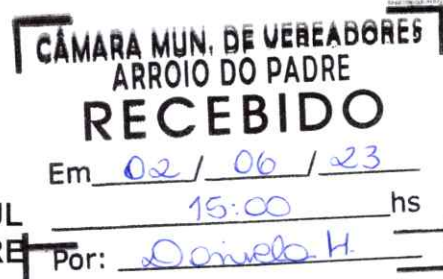 CÂMARA MUN. DE VEREADORES
ARROIO DO PADRE
RECEBIDO
Em 02 / 06 / 23
UL 15:00 hs
RE Por: Daniela H.